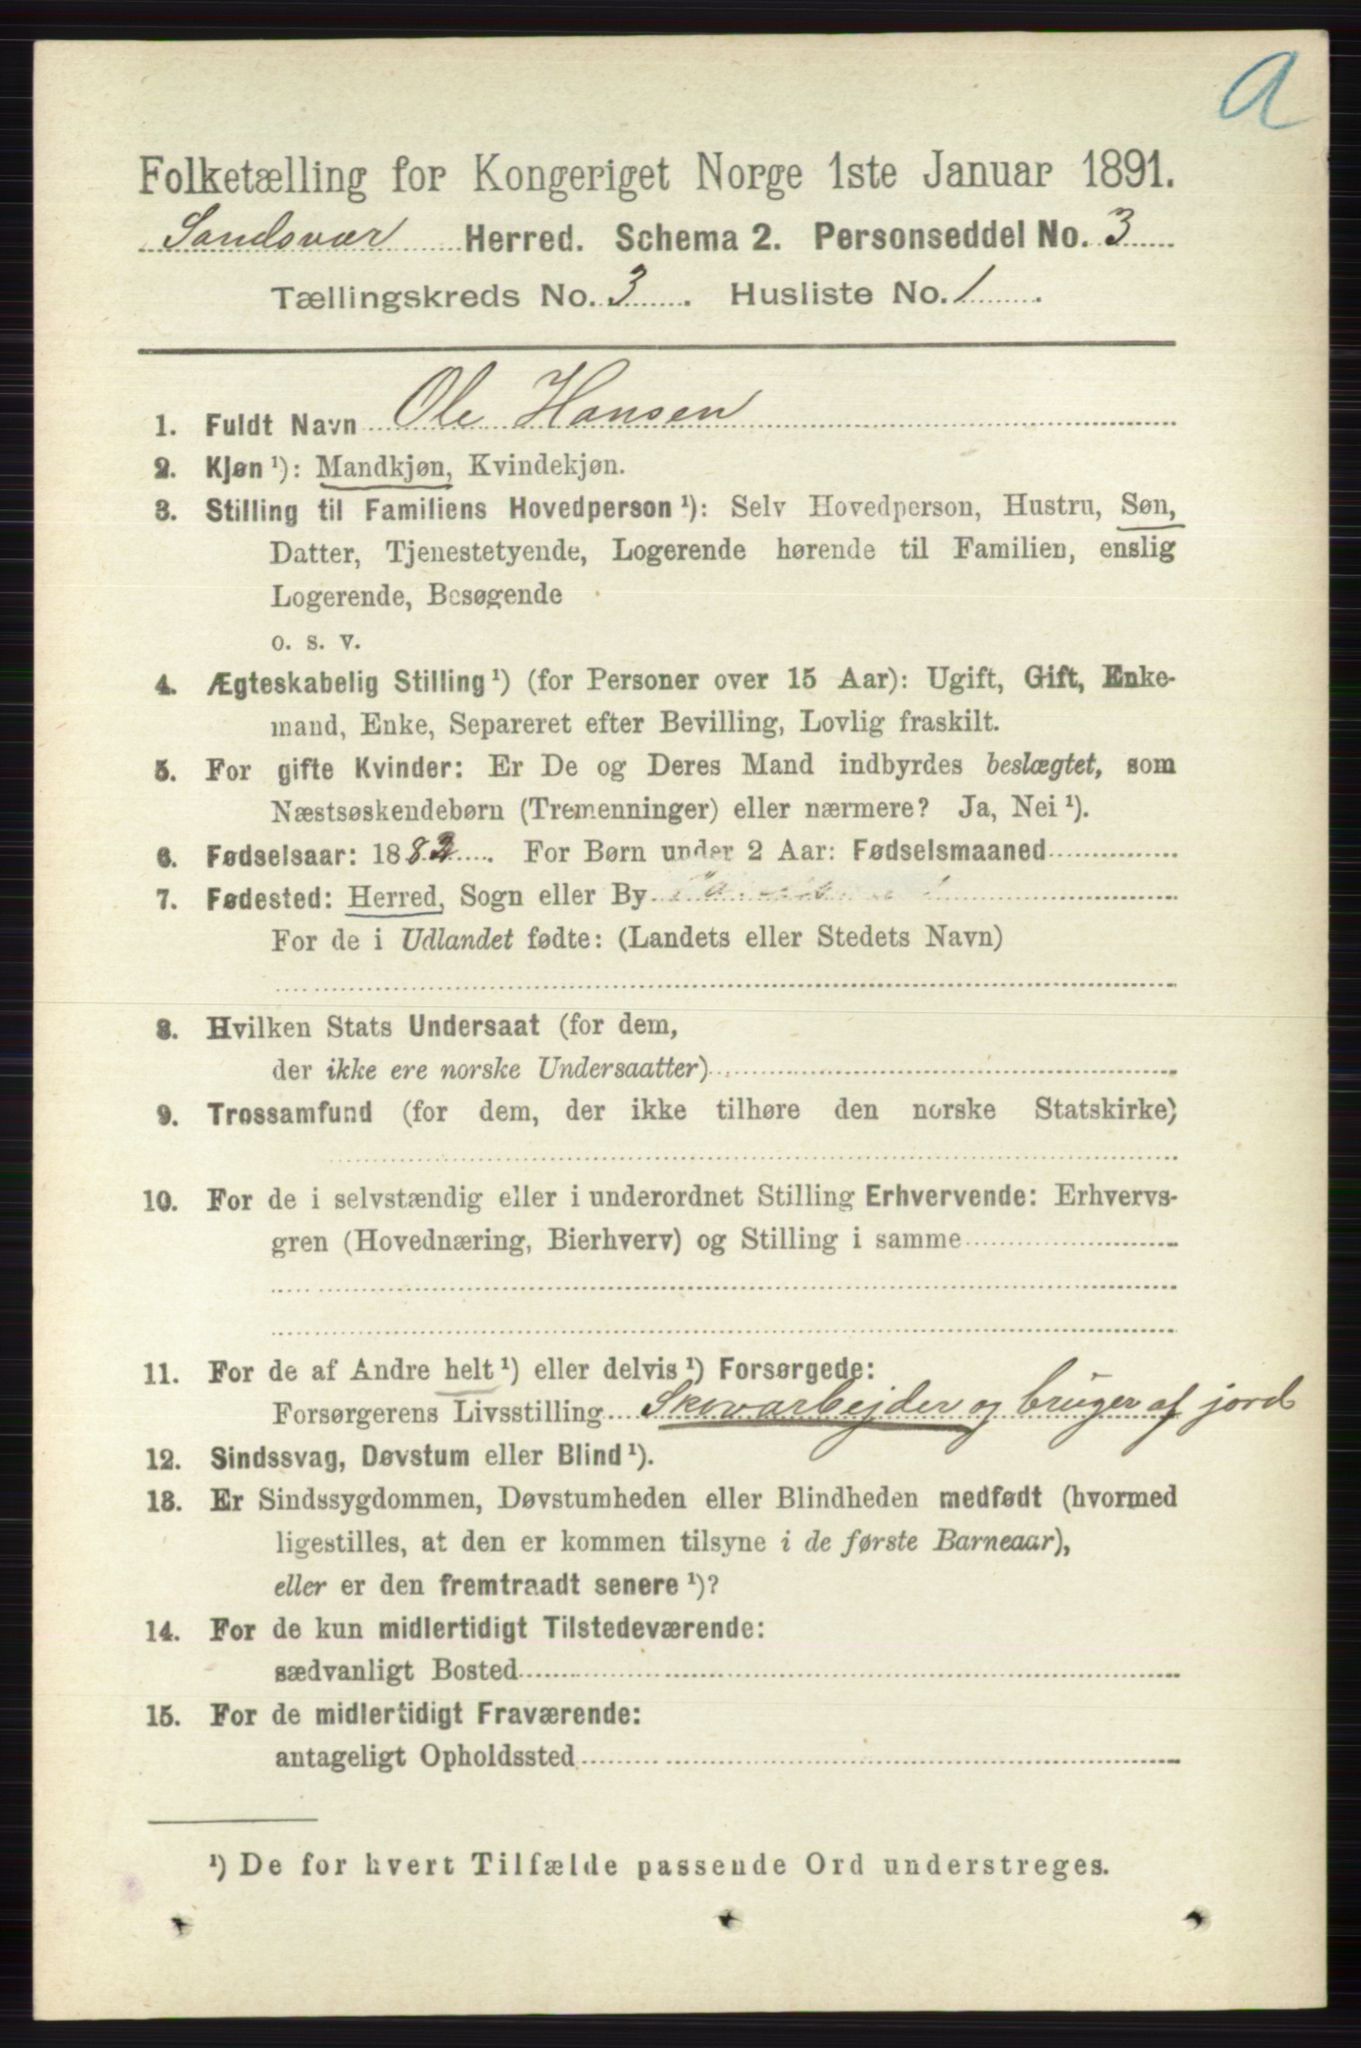 a
Folketælling for Kongeriget Norge 1ste Januar 1891.
Sandsvær Herred. Schema 2. Personseddel No. 3
Tællingskreds No. 3. Husliste No. 1.
1. Fuldt Navn Ole Hansen
2. Kjøn ¹): Mandkjøn, Kvindekjøn.
3. Stilling til Familiens Hovedperson ¹): Selv Hovedperson, Hustru, Søn,
Datter, Tjenestetyende, Logerende hørende til Familien, enslig
Logerende, Besøgende
o. s. v.
4. Ægteskabelig Stilling ¹) (for Personer over 15 Aar): Ugift, Gift, Enke-
mand, Enke, Separeret efter Bevilling, Lovlig fraskilt.
5. For gifte Kvinder: Er De og Deres Mand indbyrdes beslægtet, som
Næstsøskendebørn (Tremenninger) eller nærmere? Ja, Nei ¹).
6. Fødselsaar: 1882. For Børn under 2 Aar: Fødselsmaaned
7. Fødested: Herred, Sogn eller By
For de i Udlandet fødte: (Landets eller Stedets Navn)
8. Hvilken Stats Undersaat (for dem,
der ikke ere norske Undersaatter)
9. Trossamfund (for dem, der ikke tilhøre den norske Statskirke)
10. For de i selvstændig eller i underordnet Stilling Erhvervende: Erhvervs-
gren (Hovednæring, Bierhverv) og Stilling i samme
11. For de af Andre helt ¹) eller delvis ¹) Forsørgede:
Forsørgerens Livsstilling Skovarbejder og bruger af jord
12. Sindssvag, Døvstum eller Blind ¹).
13. Er Sindssygdommen, Døvstumheden eller Blindheden medfødt (hvormed
ligestilles, at den er kommen tilsyne i de første Barneaar),
eller er den fremtraadt senere ¹)?
14. For de kun midlertidigt Tilstedeværende:
sædvanligt Bosted
15. For de midlertidigt Fraværende:
antageligt Opholdssted
¹) De for hvert Tilfælde passende Ord understreges.